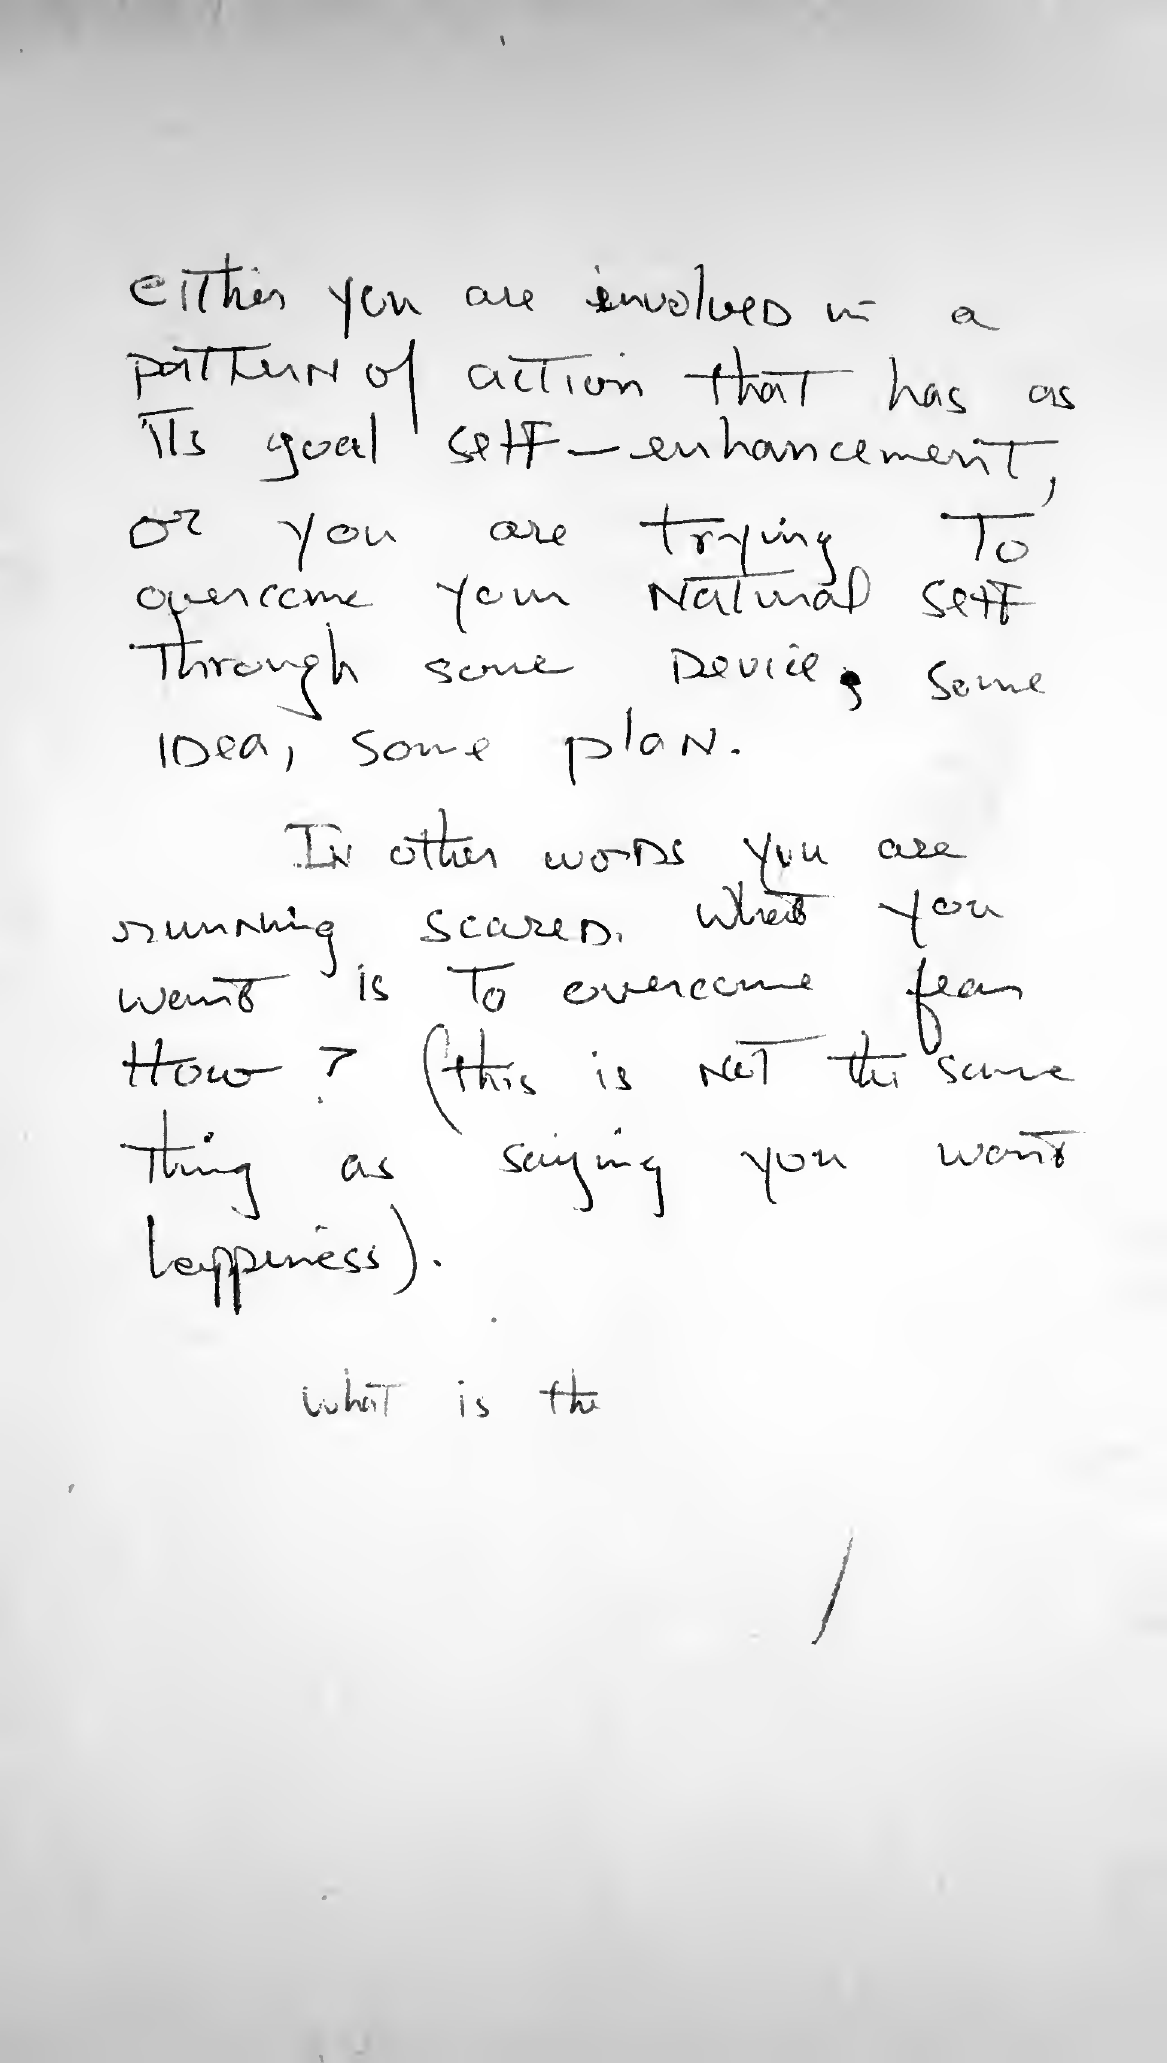 either you are involved in a
pattern of action that has as
its goal self-enhancement,
or you are trying to
overcome your natural self
through some device, some
idea, some plan.
In other words you are
running scared. What you
want is to overcome fear
How? (this is not the same
thing as saying you want
happiness).
What is the